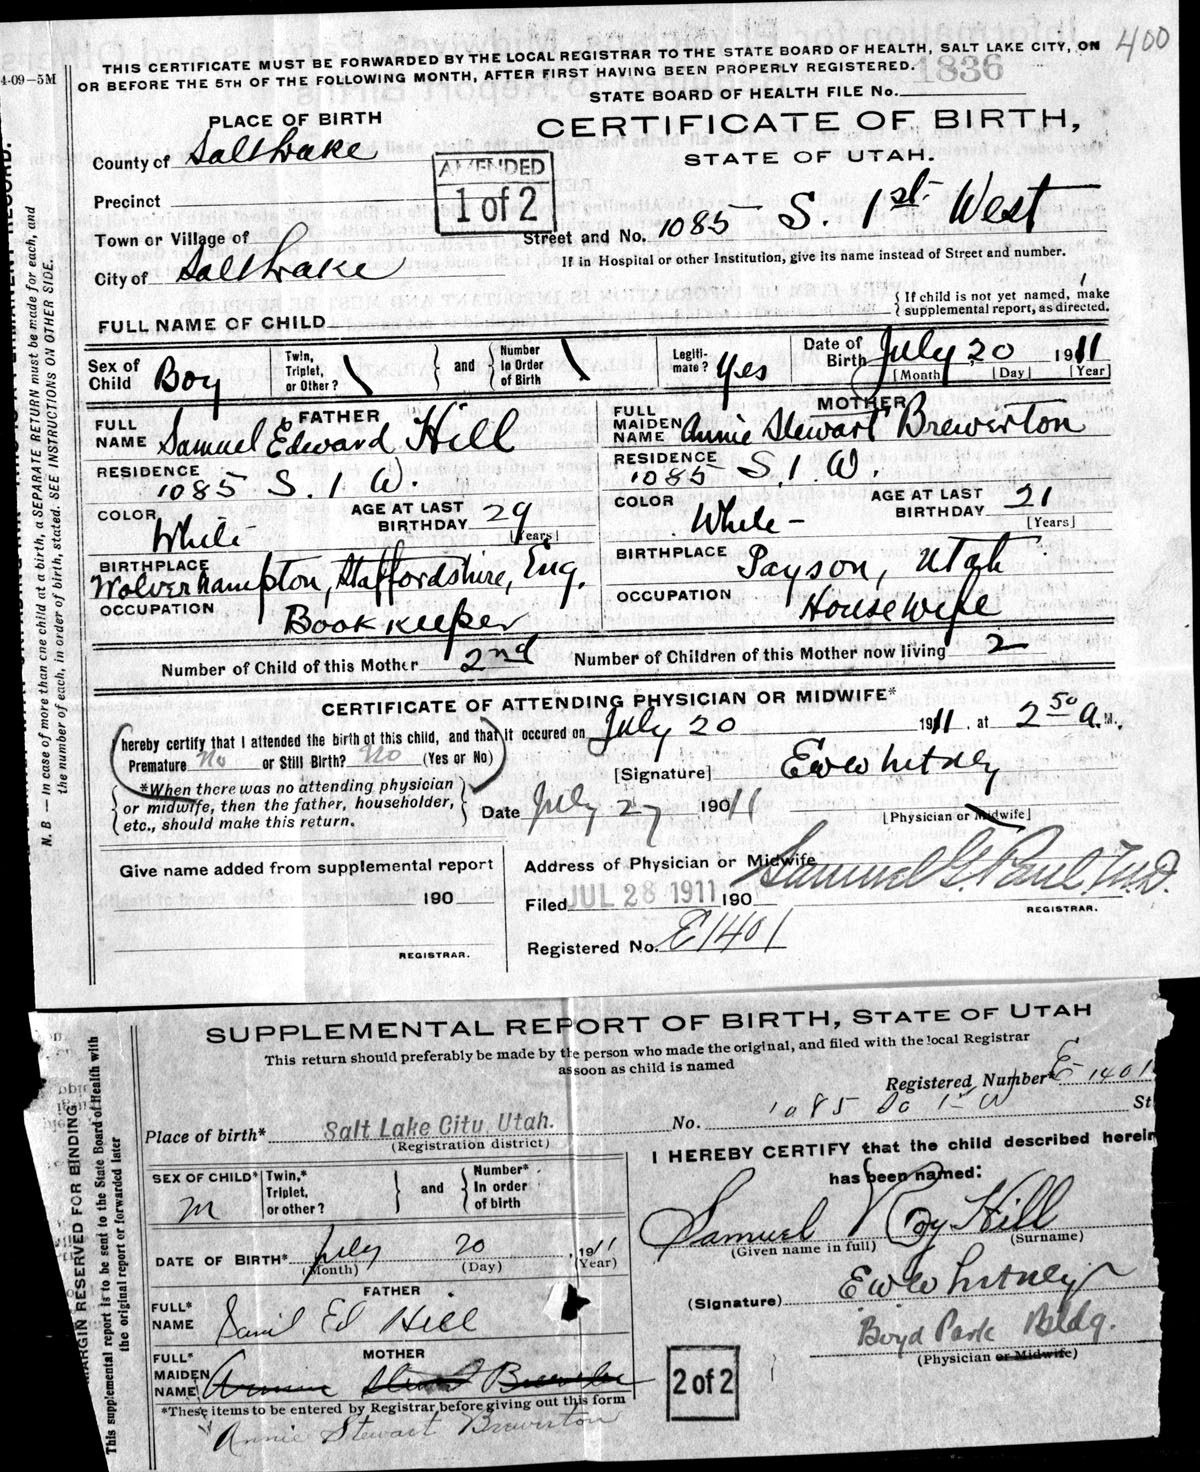 400
4-09-5M
THIS CERTIFICATE MUST BE FORWARDED BY THE LOCAL REGISTRAR TO THE STATE BOARD OF HEALTH, SALT LAKE CITY, ON
OR BEFORE THE 5TH OF THE FOLLOWING MONTH, AFTER FIRST HAVING BEEN PROPERLY REGISTERED.
1836
STATE BOARD OF HEALTH FILE No.
PLACE OF BIRTH
CERTIFICATE OF BIRTH,
STATE OF UTAH.
County of Salt Lake
AMENDED
1 of 2
Precinct
Town or Village of
Street and No. 1085 S. 1st West
City of Salt Lake
If in Hospital or other Institution, give its name instead of Street and number.
FULL NAME OF CHILD
If child is not yet named, make
supplemental report, as directed.
Sex of Child Boy
Twin, Triplet, or Other? \
and
Number In Order of Birth \
Legiti-mate? Yes
Date of Birth July 20 1911
[Month] [Day] [Year]
FATHER
FULL NAME Samuel Edward Hill
MOTHER
FULL MAIDEN NAME Annie Stewart Brewerton
RESIDENCE 1085 S. 1 W.
RESIDENCE 1085 S. 1 W.
COLOR White
AGE AT LAST BIRTHDAY 29
[Years]
COLOR White -
AGE AT LAST BIRTHDAY 21
[Years]
BIRTHPLACE Wolverhampton, Staffordshire, Eng.
BIRTHPLACE Payson, Utah
OCCUPATION Bookkeeper
OCCUPATION Housewife
Number of Child of this Mother 2nd
Number of Children of this Mother now living 2
CERTIFICATE OF ATTENDING PHYSICIAN OR MIDWIFE*
hereby certify that I attended the birth of this child, and that it occured on July 20 1911, at 2 50 A.M.,
Premature No or Still Birth? No (Yes or No)
[Signature] E W Whitney
*When there was no attending physician
or midwife, then the father, householder,
etc., should make this return.
Date July 27 1901 11
[Physician or Midwife]
Give name added from supplemental report
190
REGISTRAR.
Address of Physician or Midwife
Samuel G. Paul, M.D.
Filed JUL 28 1911 190
REGISTRAR.
Registered No. E1401
N. B — In case of more than one child at a birth, a SEPARATE RETURN must be made for each, and
the number of each, in order of birth, stated. SEE INSTRUCTIONS ON OTHER SIDE.
SUPPLEMENTAL REPORT OF BIRTH, STATE OF UTAH
This return should preferably be made by the person who made the original, and filed with the local Registrar
as soon as child is named
Registered Number E-1401
Place of birth* Salt Lake City, Utah.
(Registration district)
No. 1085 So 1st W St
SEX OF CHILD* M
Twin,* Triplet, or other?
and
Number* In order of birth
I HEREBY CERTIFY that the child described herein
has been named:
Samuel Roy Hill
(Given name in full) (Surname)
DATE OF BIRTH* July 20, 1911
(Month) (Day) (Year)
FATHER
FULL* NAME Saml Ed Hill
(Signature) E W Whitney
Boyd Park Bldg.
(Physician or Midwife)
MOTHER
FULL* MAIDEN NAME
2 of 2
*These items to be entered by Registrar before giving out this form
Annie Stewart Brewerton
MARGIN RESERVED FOR BINDING
This supplemental report is to be sent to the State Board of Health with
the original report or forwarded later